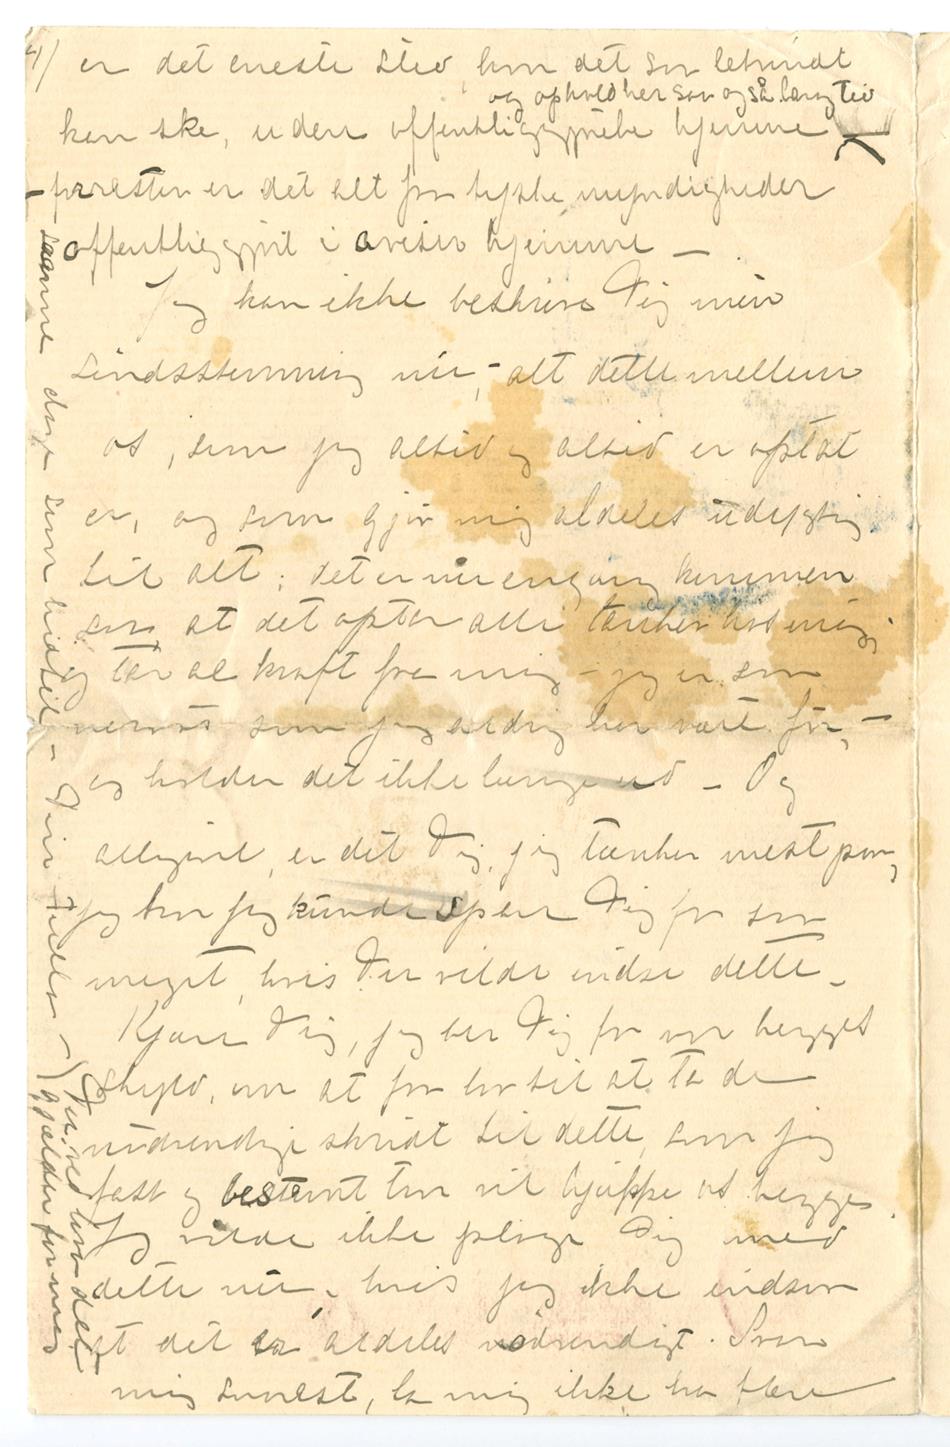 4/ er det eneste sted, hvor det saa letvindt
og ophold her saa også lang tid
kan ske, uden offentliggjørelse hjemme
– forresten er det alt for tyske myndigheder
offentliggjort i aviser hjemme –
Jeg kan ikke beskrive Dig min
sindsstemning nu, – alt dette mellem
os, som jeg altid og altid er optat
er, og som gjør mig aldeles udygtig
til alt; det er nu engang kommen
saa at det optar alle tanker hos mig
og tar al kraft fra mig – jeg er saa
nervøs som jeg aldrig har vært før, –
og holder det ikke længe ud – Og
alligevel, er det Dig, jeg tænker mest paa,
jeg tror jeg kunde spare Dig for saa
meget, hvis Du vilde indse dette –
Kjære Dig, jeg ber Dig for vor begges
skyld, om at ta de
nødvendige skridt til dette, som jeg
fast og bestemt tror vil hjælpe os begge
Jeg vilde ikke plage Dig med
dette nu – hvis jeg ikke indsaa
at det er aldeles nødvendigt. Svar
mig snarest, la mig ikke ha flere
saanne dage som hidtil – Din Tulla –
) Du ved hvor det
gjælder for mig